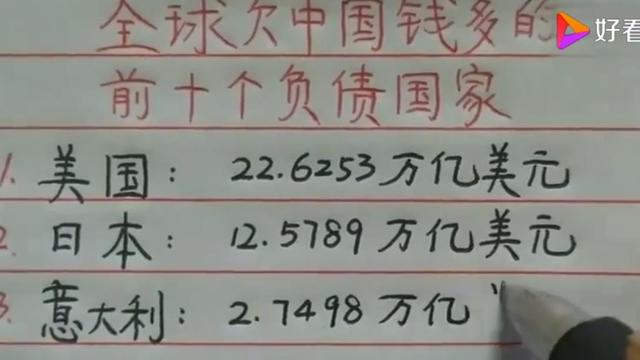 全球欠中国钱多的
好看
前十个负债国家
1. 美国：22.6253万亿美元
2. 日本：12.5789万亿美元
3. 意大利：2.7498万亿